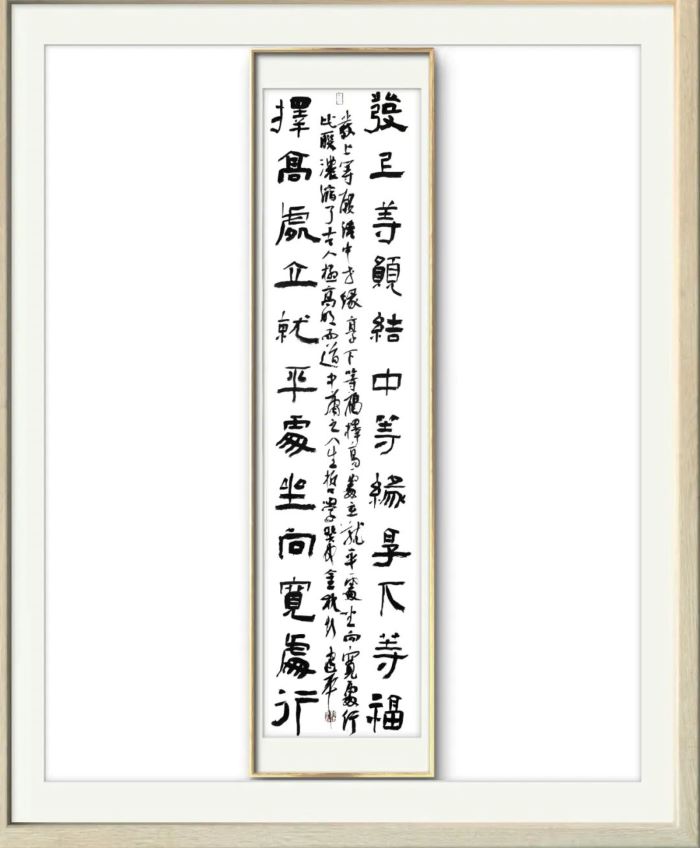 發上等願結中等緣享下等福
發上等願結中等緣享下等福擇高處立就平處坐向寬處行
此聯濃縮了古人極高明而道中庸之人生哲學癸卯金秋 建平
擇高處立就平處坐向寬處行